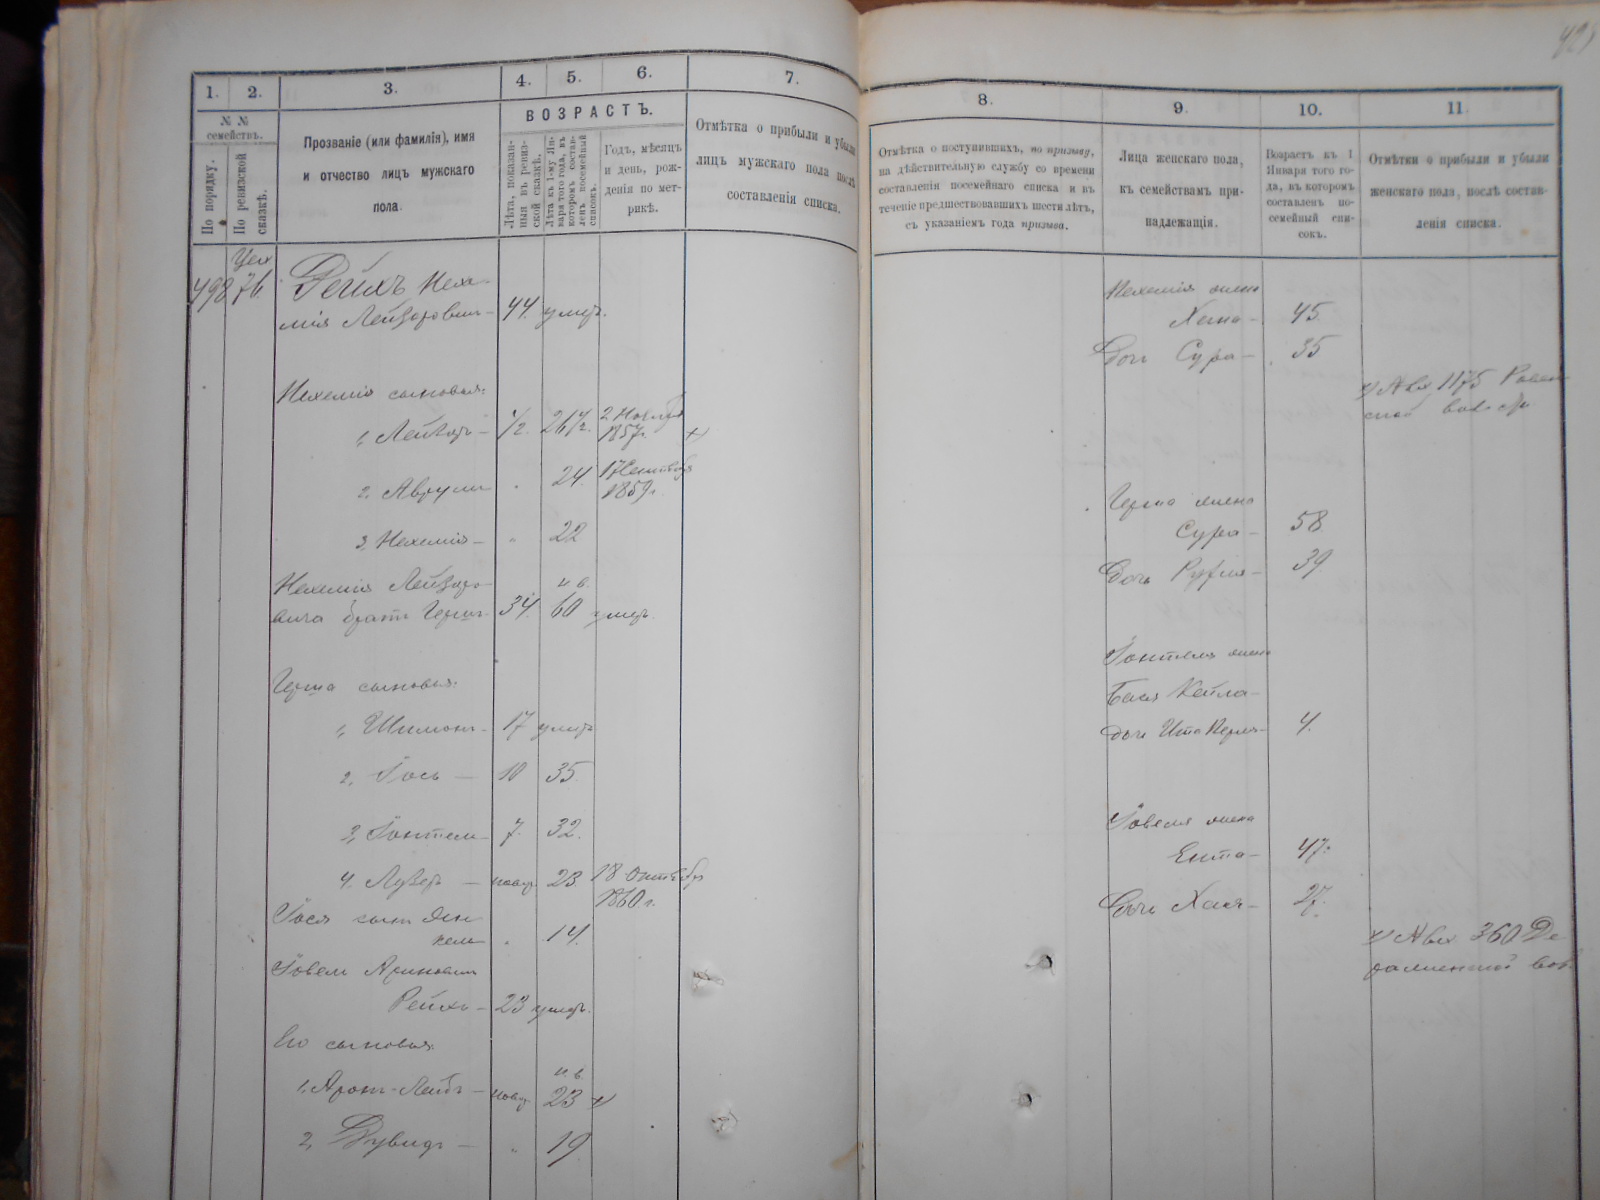 1.
2.
3.
4.
5.
6.
7.
№ №
семействъ.
По порядку.
По ревизской
сказкѣ.
Прозваніе (или фамилія), имя
и отчество лицъ мужскаго
пола.
ВОЗРАСТЪ.
Лѣта, показан-
ныя въ ревиз-
ской сказкѣ.
Лѣта къ 1-му Ян-
варя того года, въ
которомъ состав-
ленъ посемейный
списокъ.
Годъ, мѣсяцъ
и день, рож-
денія по мет-
рикѣ.
Отмѣтка о прибыли и убыли
лицъ мужскаго пола послѣ
составленія списка.
498
76.
Рейхъ Нехе-
мія Лейзоровичъ 44. умеръ.
Нехемія сыновья:
1, Лейзоръ 1/2. 26 1/2. 2 Ноября
1857 г.
2, Аврумъ 24. 17 Сентября
1859 г.
3, Нехемія 22
Нехемія Лейзоро-
вича братъ Герша 34. 60 умеръ.
Герша сыновья:
1, Шимонъ 17 умеръ
2, Іось 10 35.
3, 7. 32.
4. Лузеръ 23. 18 Октября
1860 г.
Іося сынъ Янкель
14.
Іовель Ароновичъ
Рейхъ 23 умеръ.
Его сыновья:
1, Аронъ-Лейбъ 23
2, Дувидъ 19
8.
9.
10.
11.
Отмѣтка о поступившихъ, по призыву,
на дѣйствительную службу со времени
составленія посемейнаго списка и въ
теченіе предшествовавшихъ шести лѣтъ,
съ указаніемъ года призыва.
Лица женскаго пола,
къ семействамъ при-
надлежащія.
Возрастъ къ 1
Января того го-
да, въ которомъ
составленъ по-
семейный спи-
сокъ.
Отмѣтки о прибыли и убыли
женскаго пола, послѣ состав-
ленія списка.
Нехемія жена
45.
Дочь Сура 35
1175
Герша жена
Сура 58
Дочь 39.
жена
Бася Кейла
дочь Ита 4.
Іовеля жена
Ента 47.
Дочь Хася 27.
360